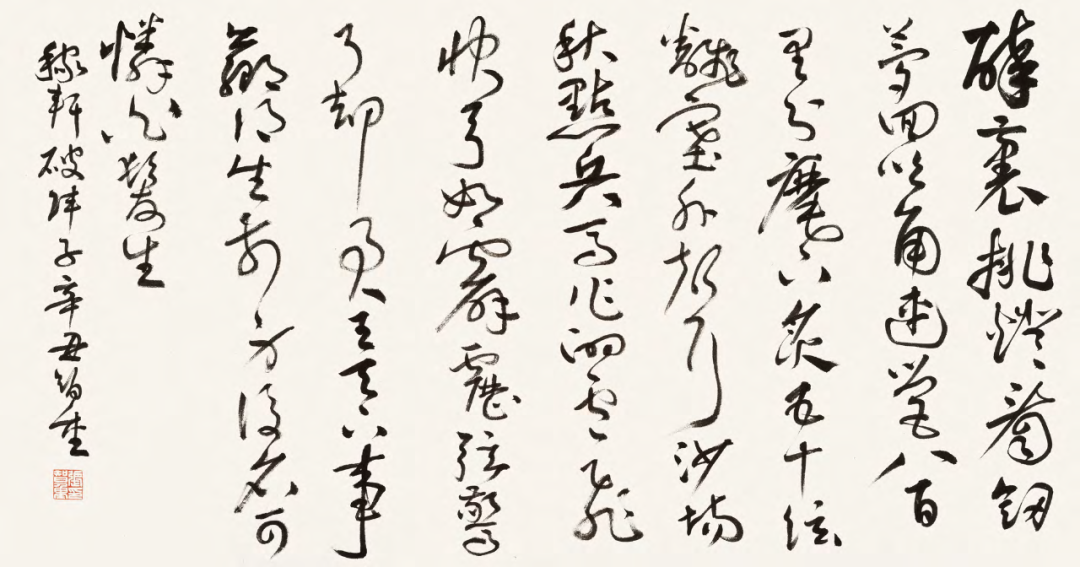 醉裏挑燈看劒
夢回吹角連營八百
里分麾下炙五十弦
飜塞外聲沙場
秋點兵馬作的盧飛
快弓如霹靂弦驚
了却君王天下事
贏得生前身後名可
憐白髮生
稼軒破陣子辛丑智重